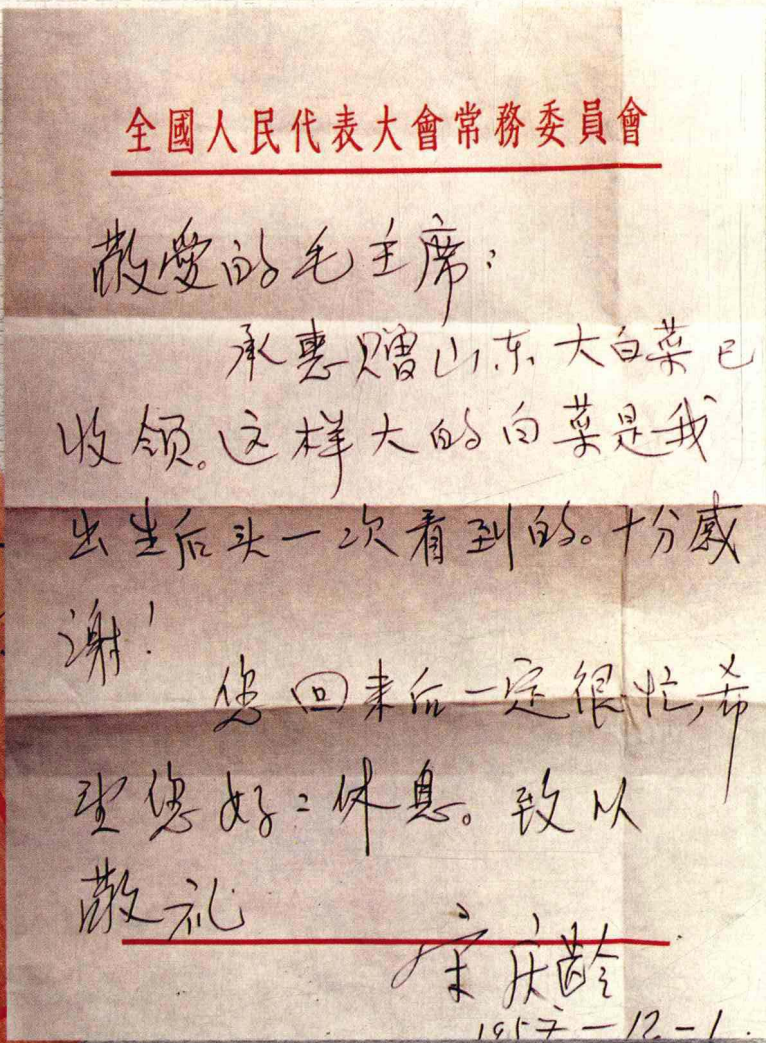 全國人民代表大會常務委員會
敬愛的毛主席：
承惠赠山东大白菜已
收领。这样大的白菜是我
出生后头一次看到的。十分感
谢！
您回来后一定很忙，希
望您好：休息。致以
敬礼
宋庆龄
1957-12-1.